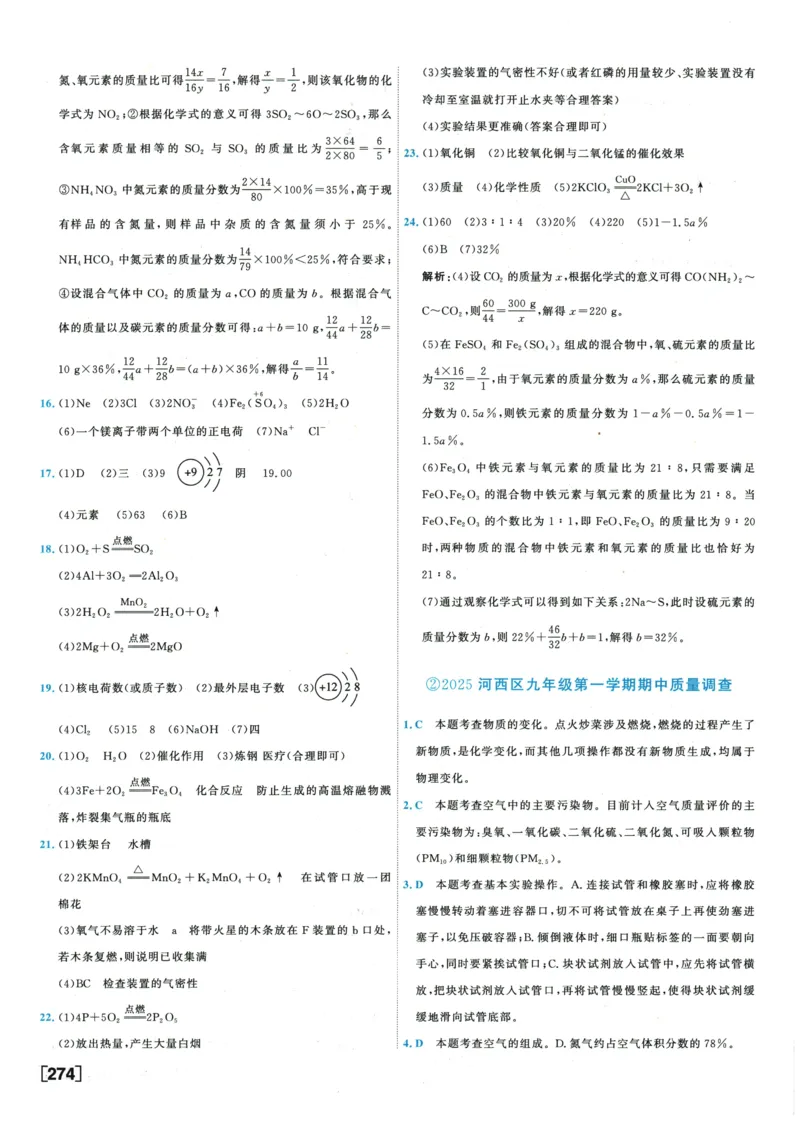 氮、氧元素的质量比可得14x/16y=7/16,解得x/y=1/2,则该氧化物的化
学式为 NO₂;②根据化学式的意义可得 3SO₂～6O～2SO₃,那么
含氧元素质量相等的 SO₂ 与 SO₃ 的质量比为 3×64/2×80=6/5;
③NH₄NO₃ 中氮元素的质量分数为2×14/80×100%=35%,高于现
有样品的含氮量,则样品中杂质的含氮量须小于 25%。
NH₄HCO₃ 中氮元素的质量分数为14/79×100%<25%,符合要求;
④设混合气体中 CO₂ 的质量为 a,CO的质量为 b。根据混合气
体的质量以及碳元素的质量分数可得:a+b=10 g,12/44a+12/28b=
10 g×36%,12/44a+12/28b=(a+b)×36%,解得a/b=11/14。
16.(1)Ne (2)3Cl (3)2NO₃⁻ (4)Fe₂(S⁺⁶O₄)₃ (5)2H₂O
(6)一个镁离子带两个单位的正电荷 (7)Na⁺ Cl⁻
17.(1)D (2)三 (3)9 +9 2 7 阴 19.00
(4)元素 (5)63 (6)B
18.(1)O₂+S 点燃══ SO₂
(2)4Al+3O₂ ══2Al₂O₃
(3)2H₂O₂ MnO₂══ 2H₂O+O₂↑
(4)2Mg+O₂ 点燃══ 2MgO
19.(1)核电荷数(或质子数) (2)最外层电子数 (3) +12 2 8
(4)Cl₂ (5)15 8 (6)NaOH (7)四
20.(1)O₂ H₂O (2)催化作用 (3)炼钢 医疗(合理即可)
(4)3Fe+2O₂ 点燃══ Fe₃O₄ 化合反应 防止生成的高温熔融物溅
落,炸裂集气瓶的瓶底
21.(1)铁架台 水槽
(2)2KMnO₄ △══ MnO₂+K₂MnO₄+O₂↑ 在试管口放一团
棉花
(3)氧气不易溶于水 a 将带火星的木条放在 F 装置的 b 口处,
若木条复燃,则说明已收集满
(4)BC 检查装置的气密性
22.(1)4P+5O₂ 点燃══ 2P₂O₅
(2)放出热量,产生大量白烟
[274]
(3)实验装置的气密性不好(或者红磷的用量较少、实验装置没有
冷却至室温就打开止水夹等合理答案)
(4)实验结果更准确(答案合理即可)
23.(1)氧化铜 (2)比较氧化铜与二氧化锰的催化效果
(3)质量 (4)化学性质 (5)2KClO₃ CuO══△ 2KCl+3O₂↑
24.(1)60 (2)3∶1∶4 (3)20% (4)220 (5)1-1.5a%
(6)B (7)32%
解析:(4)设 CO₂ 的质量为 x,根据化学式的意义可得 CO(NH₂)₂～
C～CO₂,则60/44=300 g/x,解得 x=220 g。
(5)在 FeSO₄ 和 Fe₂(SO₄)₃ 组成的混合物中,氧、硫元素的质量比
为 4×16/32=2/1,由于氧元素的质量分数为 a%,那么硫元素的质量
分数为 0.5a%,则铁元素的质量分数为 1-a%-0.5a%=1-
1.5a%。
(6)Fe₃O₄ 中铁元素与氧元素的质量比为 21∶8,只需要满足
FeO、Fe₂O₃ 的混合物中铁元素与氧元素的质量比为 21∶8。当
FeO、Fe₂O₃ 的个数比为 1∶1,即 FeO、Fe₂O₃ 的质量比为 9∶20
时,两种物质的混合物中铁元素和氧元素的质量比也恰好为
21∶8。
(7)通过观察化学式可以得到如下关系:2Na～S,此时设硫元素的
质量分数为 b,则 22%+46/32b+b=1,解得 b=32%。
②2025 河西区九年级第一学期期中质量调查
1.C 本题考查物质的变化。点火炒菜涉及燃烧,燃烧的过程产生了
新物质,是化学变化,而其他几项操作都没有新物质生成,均属于
物理变化。
2.C 本题考查空气中的主要污染物。目前计入空气质量评价的主
要污染物为:臭氧、一氧化碳、二氧化硫、二氧化氮、可吸入颗粒物
(PM₁₀)和细颗粒物(PM₂.₅)。
3.D 本题考查基本实验操作。A.连接试管和橡胶塞时,应将橡胶
塞慢慢转动着塞进容器口,切不可将试管放在桌子上再使劲塞进
塞子,以免压破容器;B.倾倒液体时,细口瓶贴标签的一面要朝向
手心,同时要紧挨试管口;C.块状试剂放入试管中,应先将试管横
放,把块状试剂放入试管口,再将试管慢慢竖起,使得块状试剂缓
缓地滑向试管底部。
4.D 本题考查空气的组成。D.氮气约占空气体积分数的 78%。